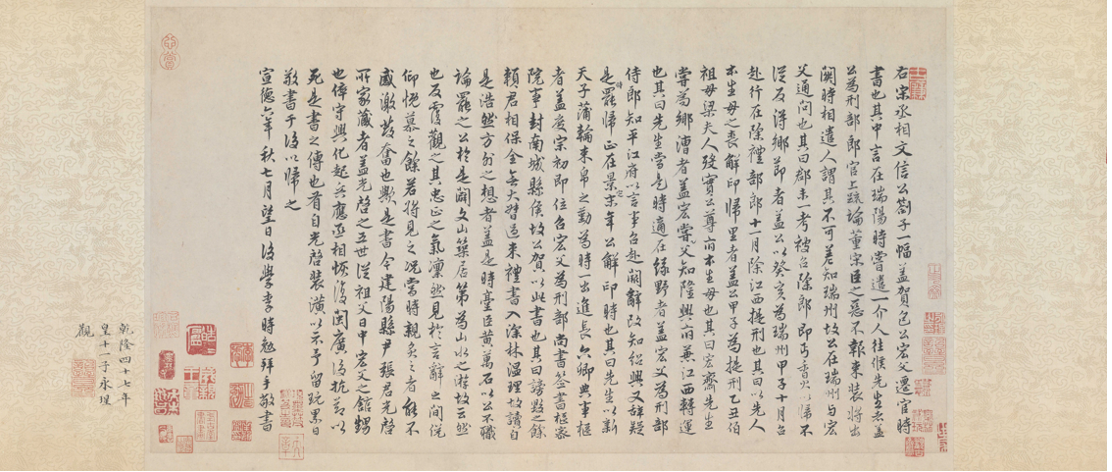 右宋丞相文信公劄子一幅蓋賀包公宏父遷官時
書也其中言在瑞陽時嘗遣一介人往候先生者蓋
公為刑部郎官上疏論董宋臣之惡不報束裝將出
闕時相遣人謂其不可差知瑞州故公在瑞州與宏
父通問也其曰郡未一考被召除郎即丐香火以歸不
從反淂鄉節者蓋公以癸亥為瑞州甲子十月召
赴行在除禮部郎十一月除江西提刑也其曰以先人
本生母之喪解印歸里者蓋公甲子為提刑乙丑伯
祖母梁夫人歿實公尊府本生母也其曰宏齋先生
嘗為鄉漕者蓋宏父知隆興府兼江西轉運
也其曰先生當是時適在緑野者蓋宏父為刑部
侍郎知平江府以言事召赴闕辭改知紹興又辭疑
是時罷歸正在景定年公解印時也其曰先生以新
天子蒲輪束帛之勤為時一出進長六卿典事樞
者蓋度宗初即位召宏父為刑部尚書簽書樞密
院事封南城縣侯故公賀以此書也其曰謗毀之餘
賴君相保全無大督過束禮書入深林溫理故讀自
是浩然方外之想者蓋是時臺臣黃萬石以公不職
論罷之公於是闢文山築居第為山水之游故云然
也反覆觀之其忠正之氣凜然見於言辭之間俛
仰愧慕之餘若將見之况當時親炙之者能不
感激發奮也歟是書今建陽縣尹張君光啓
所家藏者蓋光啓之五世從祖父日中宏父之館甥
也倅守興化起兵應丞相恢復閩廣後抗節以
死是書之傳也有自光啓裝潢以示予留玩累日
敬書于後以歸之
宣德六年秋七月望日後學李時勉拜手敬書
乾隆四十七年
皇十一子永瑆
觀